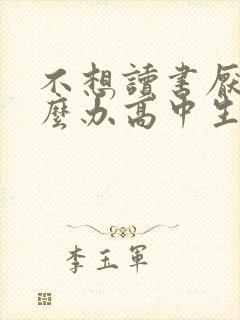 不想讀書厭
麼办高中生
李玉軍